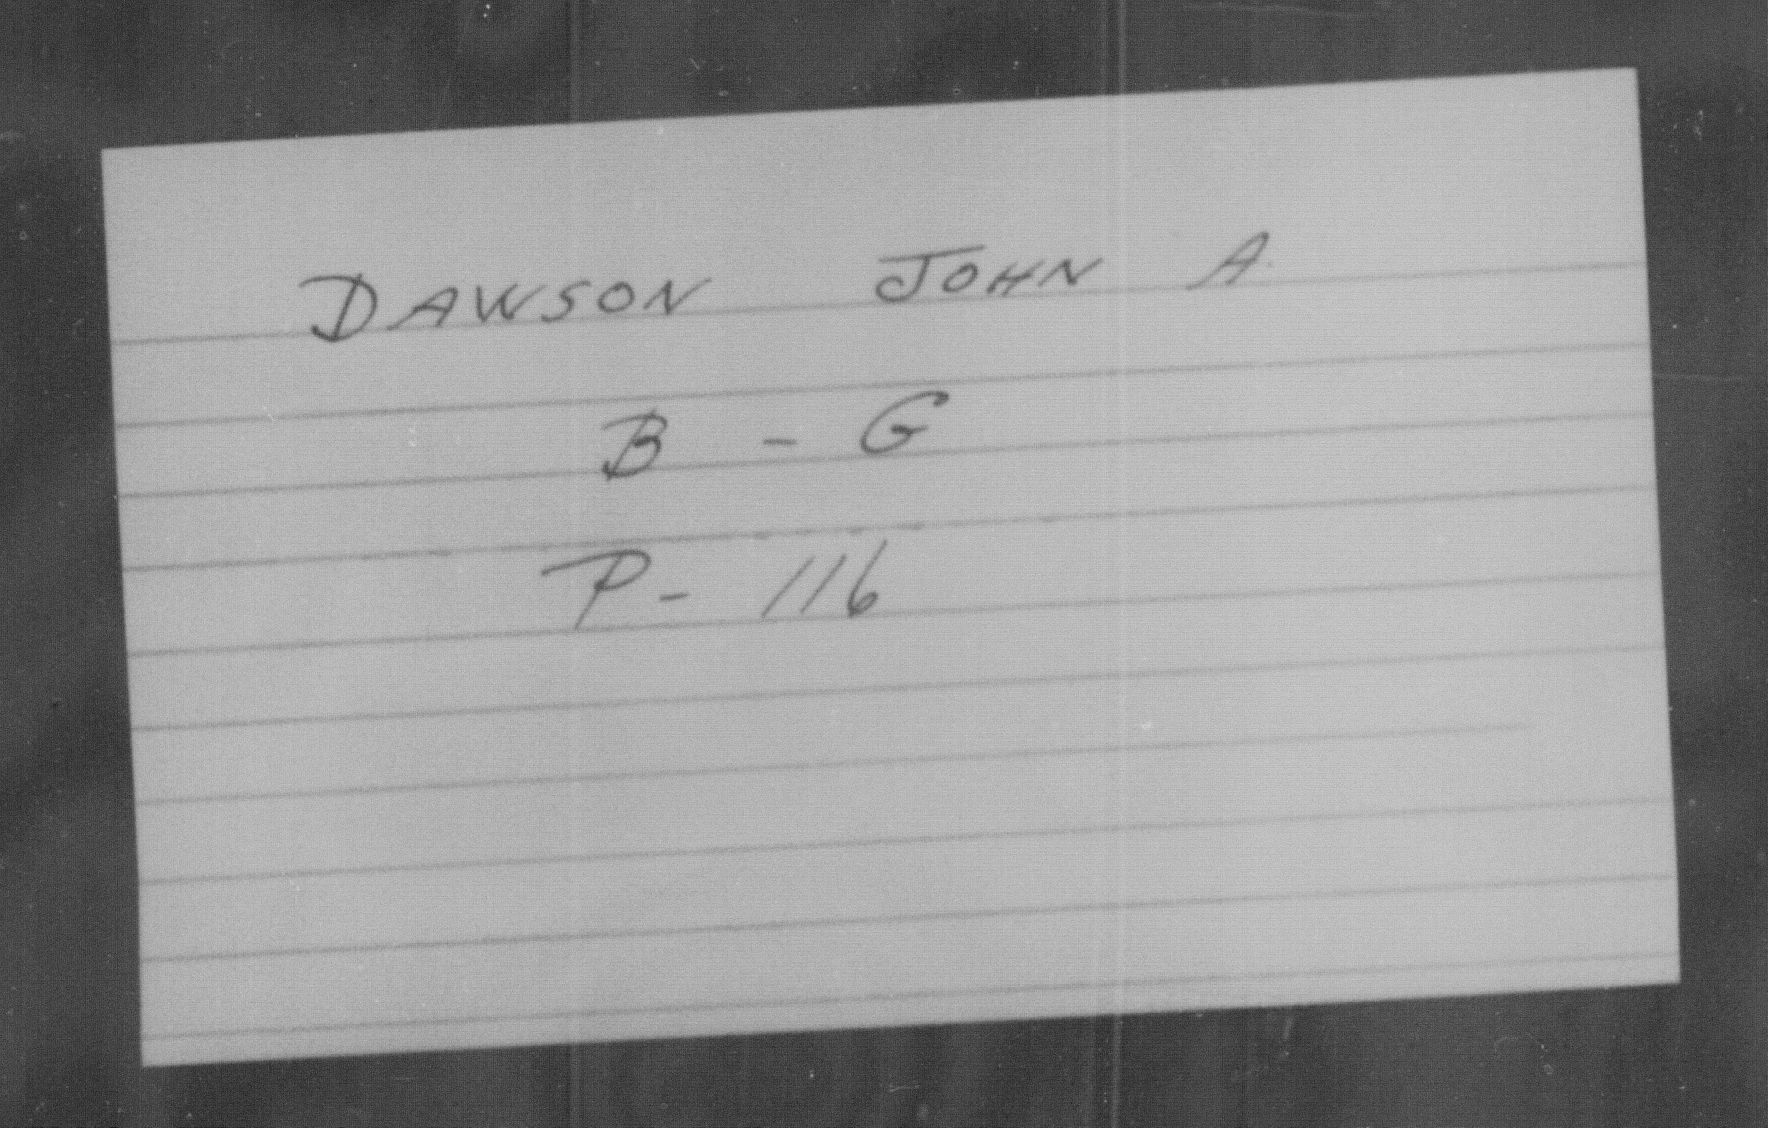 DAWSON JOHN A.
B - G
P- 116